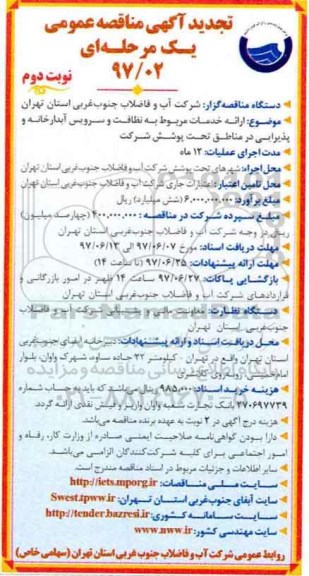 تجدید آگهی مناقصه عمومی
یک مرحله‌ای
۹۷/۰۲
نوبت دوم
دستگاه مناقصه‌گزار: شرکت آب و فاضلاب جنوب‌غربی استان تهران
موضوع: ارائه خدمات مربوط به نظافت و سرویس آبدارخانه و
پذیرایی در مناطق تحت پوشش شرکت
مدت اجرای عملیات: ۱۲ ماه
محل اجراء: شهرهای تحت پوشش شرکت آب و فاضلاب جنوب‌غربی استان تهران
محل تامین اعتبار: اعتبارات جاری شرکت آب و فاضلاب جنوب‌غربی استان تهران
مبلغ برآورد: ۶,۰۰۰,۰۰۰,۰۰۰ (شش میلیارد) ریال
مبلغ سپرده شرکت در مناقصه: ۴۰۰,۰۰۰,۰۰۰ (چهارصد میلیون)
ریال در وجه شرکت آب و فاضلاب جنوب‌غربی استان تهران
مهلت دریافت اسناد: مورخ ۹۷/۰۶/۰۷ الی ۹۷/۰۶/۱۳
مهلت ارائه پیشنهادات: ۹۷/۰۶/۲۵ (تا ساعت ۱۴)
بازگشایی پاکات: ۹۷/۰۶/۲۷ ساعت ۱۴ ظهر در امور بازرگانی و
قراردادهای شرکت آب و فاضلاب جنوب‌غربی استان تهران
دستگاه نظارت: معاونت مالی و پشتیبانی شرکت آب و فاضلاب
جنوب‌غربی استان تهران
محل دریافت اسناد و ارائه پیشنهادات: دبیرخانه آبفای جنوب‌غربی
استان تهران واقع در تهران - کیلومتر ۲۲ جاده ساوه، شهرک واوان، بلوار
امام‌خمینی، روبه‌روی کلانتری
هزینه خرید اسناد: ۹۸۵,۰۰۰ ریال می‌باشد که باید به حساب شماره
۲۷۰۶۹۷۷۳۹ بانک تجارت شعبه واوان واریز و فیش نقدی ارائه گردد.
هزینه درج آگهی در ۲ نوبت به عهده برنده مناقصه می‌باشد.
دارا بودن گواهی‌نامه صلاحیت ایمنی صادره از وزارت کار، رفاه و
امور اجتماعی برای کلیه شرکت‌کنندگان الزامی می‌باشد.
سایر اطلاعات و جزئیات مربوط در اسناد مناقصه مندرج است.
سایت ملی مناقصات: http://iets.mporg.ir
سایت آبفای جنوب‌غربی استان تهران: Swest.tpww.ir
سایت سامانه کشوری: http://tender.bazresi.ir
سایت مهندسی کشور: www.nww.ir
روابط عمومی شرکت آب و فاضلاب جنوب غربی استان تهران (سهامی خاص)